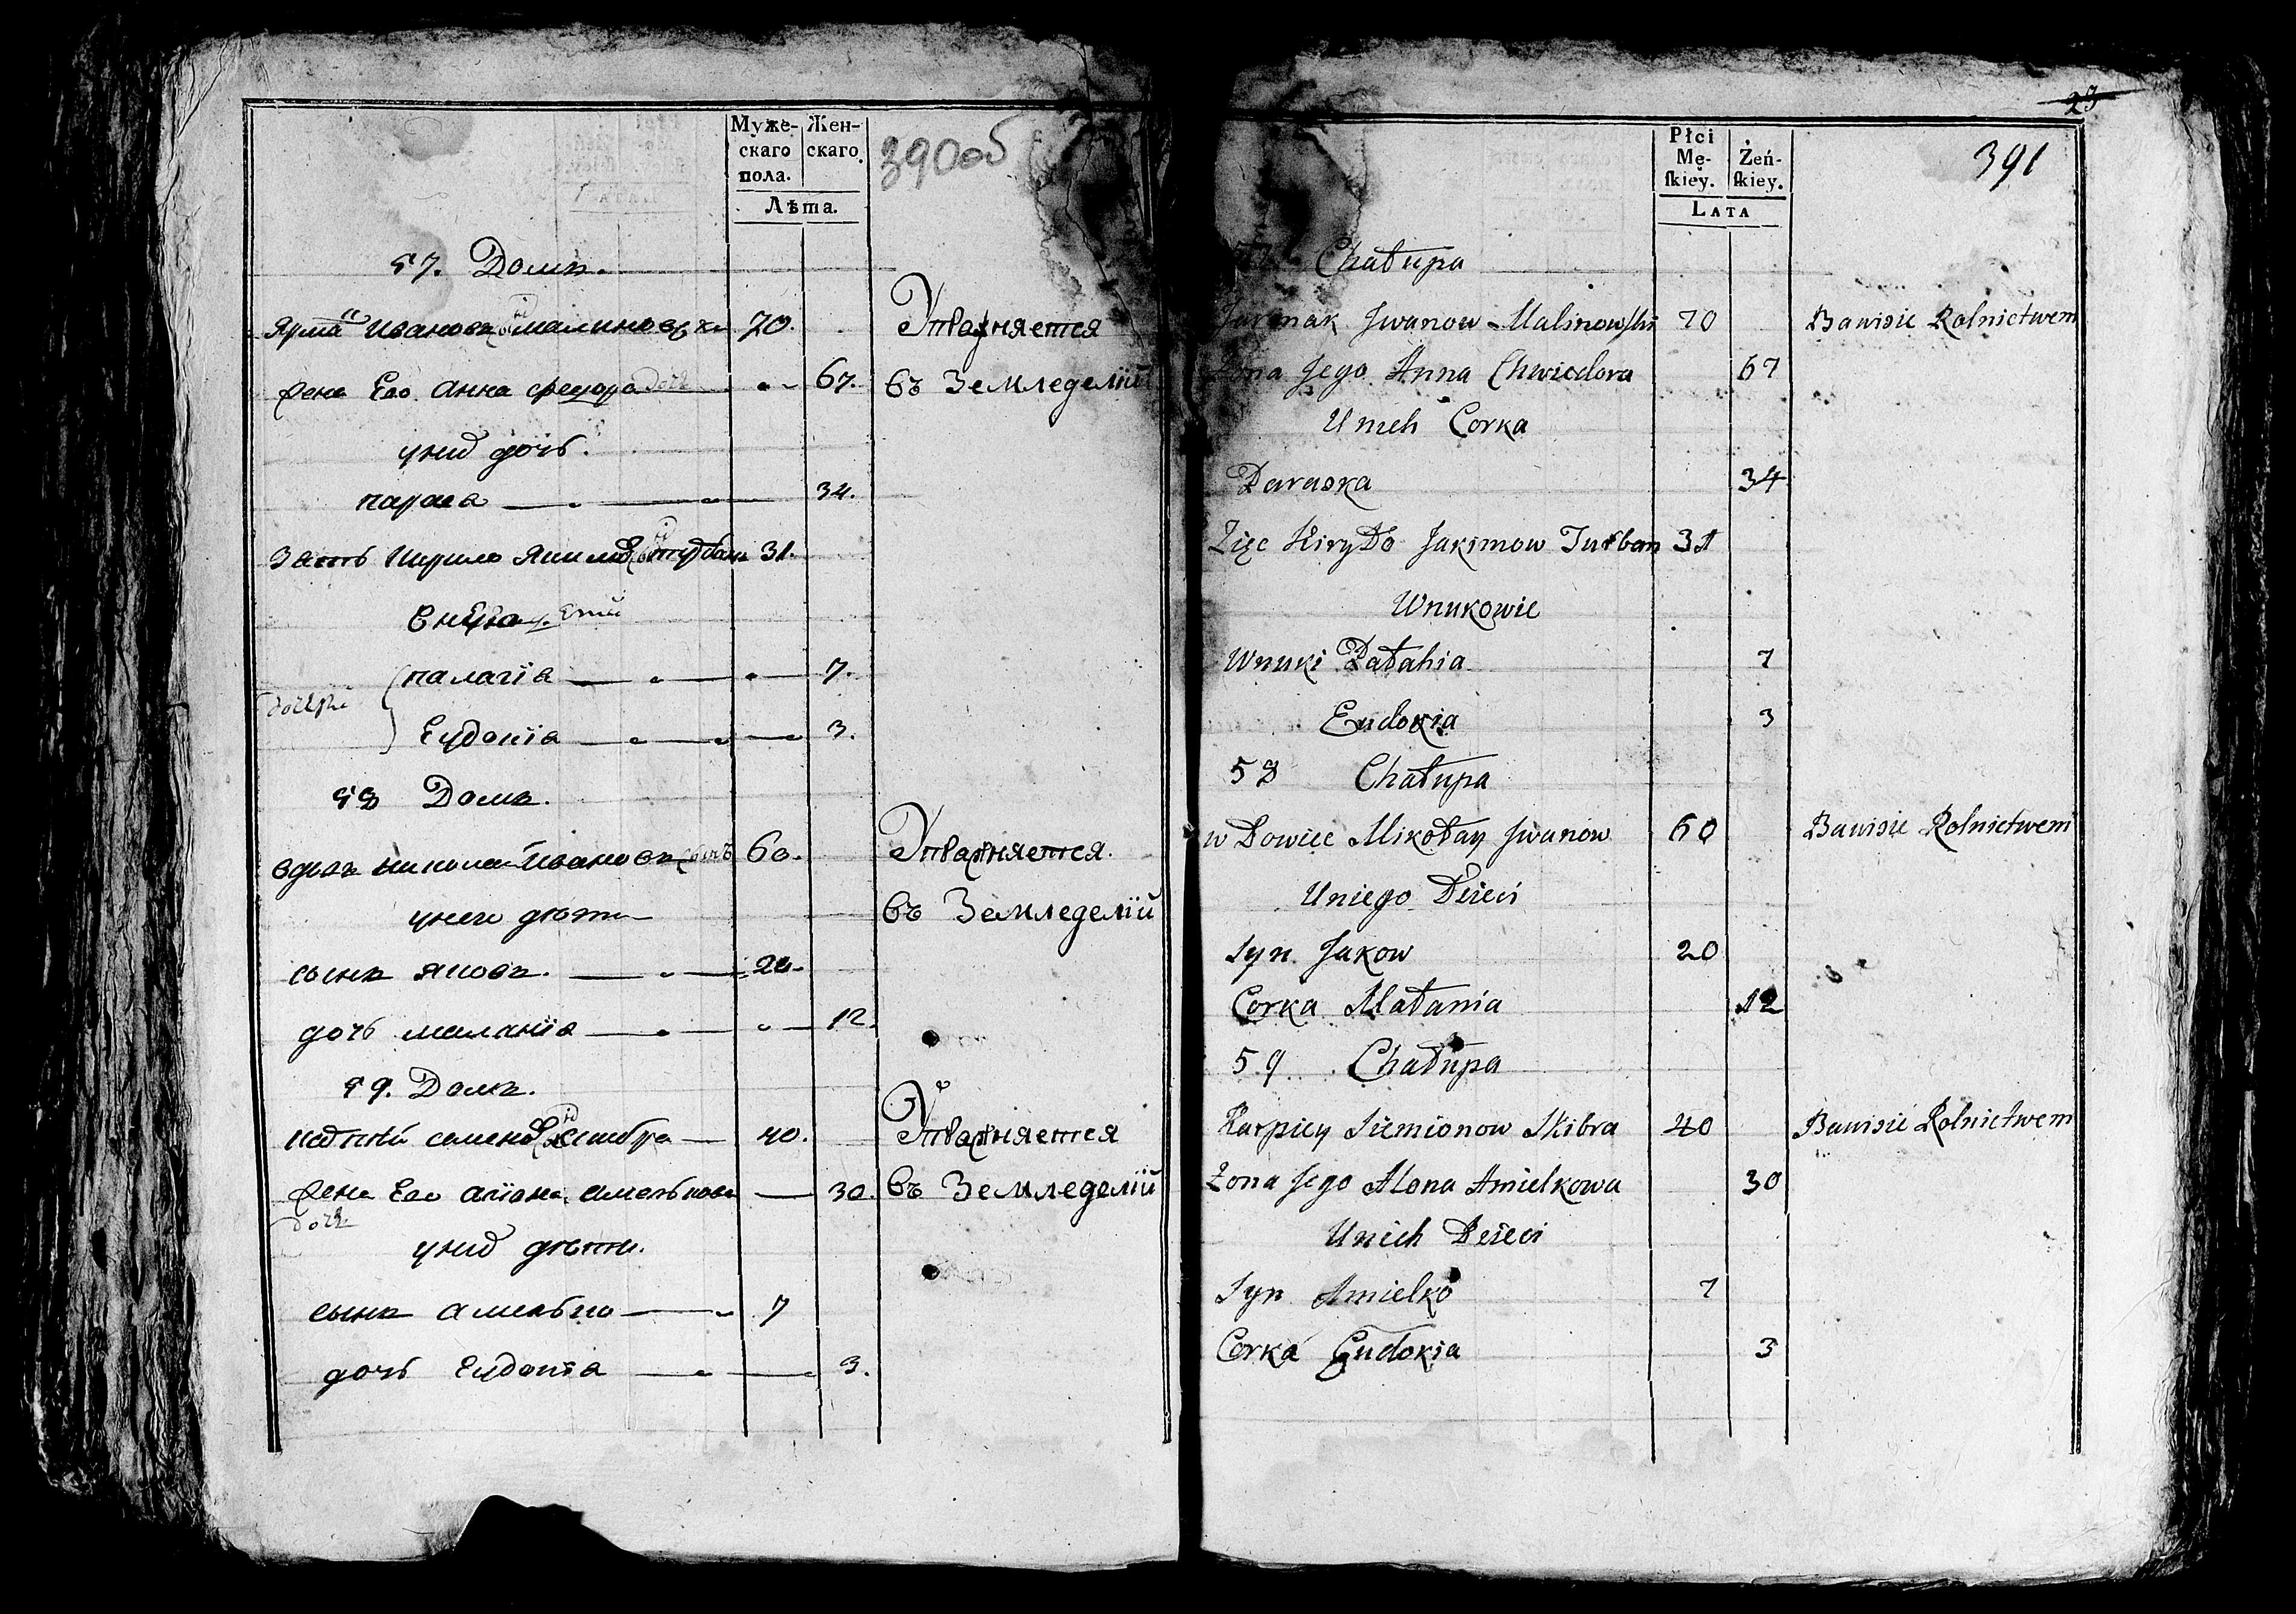 Муже-
скаго
пола.
Жен-
скаго.
Лѣта.
390об
57. Домъ.
Ярмакъ Ивановъ Малиновски 70.
Жена Его Анна Федора дочь 67.
Упражняется
въ Земледелїи
у них дочь.
параса 34.
Зять Кирило Якимовъ турбанъ 31.
внуки
палагїа 7.
Еудокїа 3.
58 Домъ.
вдовъ николай Ивановъ сынъ 60.
Упражняется.
въ Земледелїи
у него дѣти
сынъ яковъ. 20.
дочь маланїа 12.
59. Домъ.
карпѣй семеновъ скибра 40.
Жена Его алїона амелькова 30.
дочь
Упражняется
въ Земледелїи
у них дѣти.
сынъ амелько 7
дочь Еудокїа 3.
23
391
Płci
Mę-
skiey.
Żeń-
skiey.
LATA
57 Chałupa
Jarmak Jwanow Malinowski 70 Bawisie Rolnictwem
Żona Jego Anna Chwiedora 67
Unich Corka
Paraska 34
Zięc Kiryło Jakimow Turban 31
Wnukowie
Wnuki Pałahia 7
Eudokia 3
58 Chałupa
wdowiec Mikołay Jwanow 60 Bawisie Rolnictwem
Uniego Dzieci
Syn Jakow 20
Corka Małania 12
59 Chałupa
Karpiey Siemionow Skibra 40 Bawisie Rolnictwem
Żona Jego Alona Amielkowa 30
Unich Dzieci
Syn Amielko 7
Corka Eudokia 3